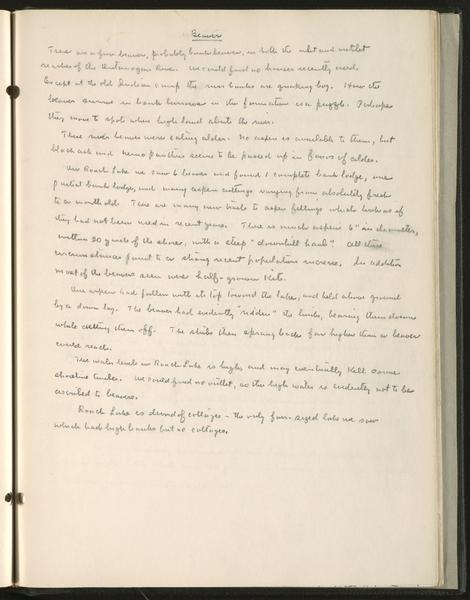 Beaver
There are a few beaver, probably bank beaver, in both the inlet and outlet
reaches of the Ontonagon River. We could find no houses recently used.
Except at the old Indian camp the river banks are quaking bog. How the
beaver survive in bank burrows in this formation is a puzzle. Perhaps
they move to spots where high land abuts the river.
These river beaver were eating alder. No aspen is available to them, but
black ash and nemo panthus seems to be passed up in favor of alder.
On Roach Lake we saw 6 beaver and found 1 complete bank lodge, one
partial bank lodge, and many aspen cuttings ranging from absolutely fresh
to a month old. There are many new trails to aspen fellings which look as if
they had not been used in recent years. There is much aspens 6" in diameter,
within 20 yards of the shore, with a steep "downhill haul". All these
circumstances point to a strong recent population increase. In addition
most of the beavers seen were half-grown kits.
One aspen had fallen with its top toward the lake, and held above ground
by a down log. The beaver had evidently "ridden" the limbs, bearing them down
while cutting them off. The stubs then sprang back far higher than a beaver
could reach.
The water level in Roach Lake is high, and may eventually kill some
shoreline timber. We could find no outlet, so the high water is evidently not to be
ascribed to beavers.
Roach Lake is devoid of cottages - the only fair-sized lake we saw
which had high banks but no cottages.